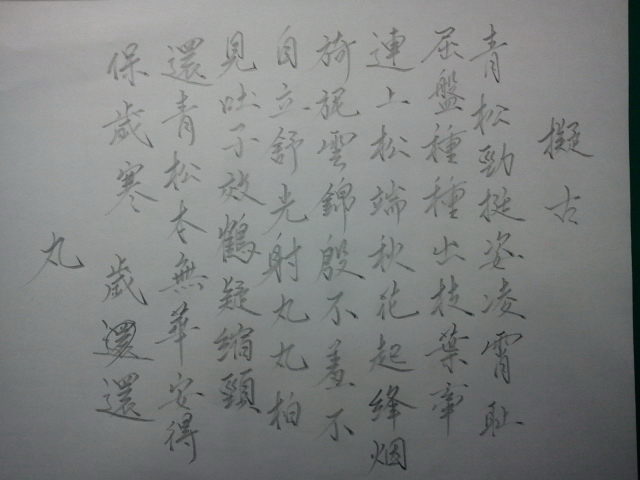 擬古
青松勁挺姿凌霄耻
屈盤種種出枝葉牽
連上松端秋花起絳烟
旖旎雲錦殷不羞不
自立舒光射丸丸柏
見吐子效鶴疑縮頸
還青松本無華安得
保歲寒 歲還還
丸